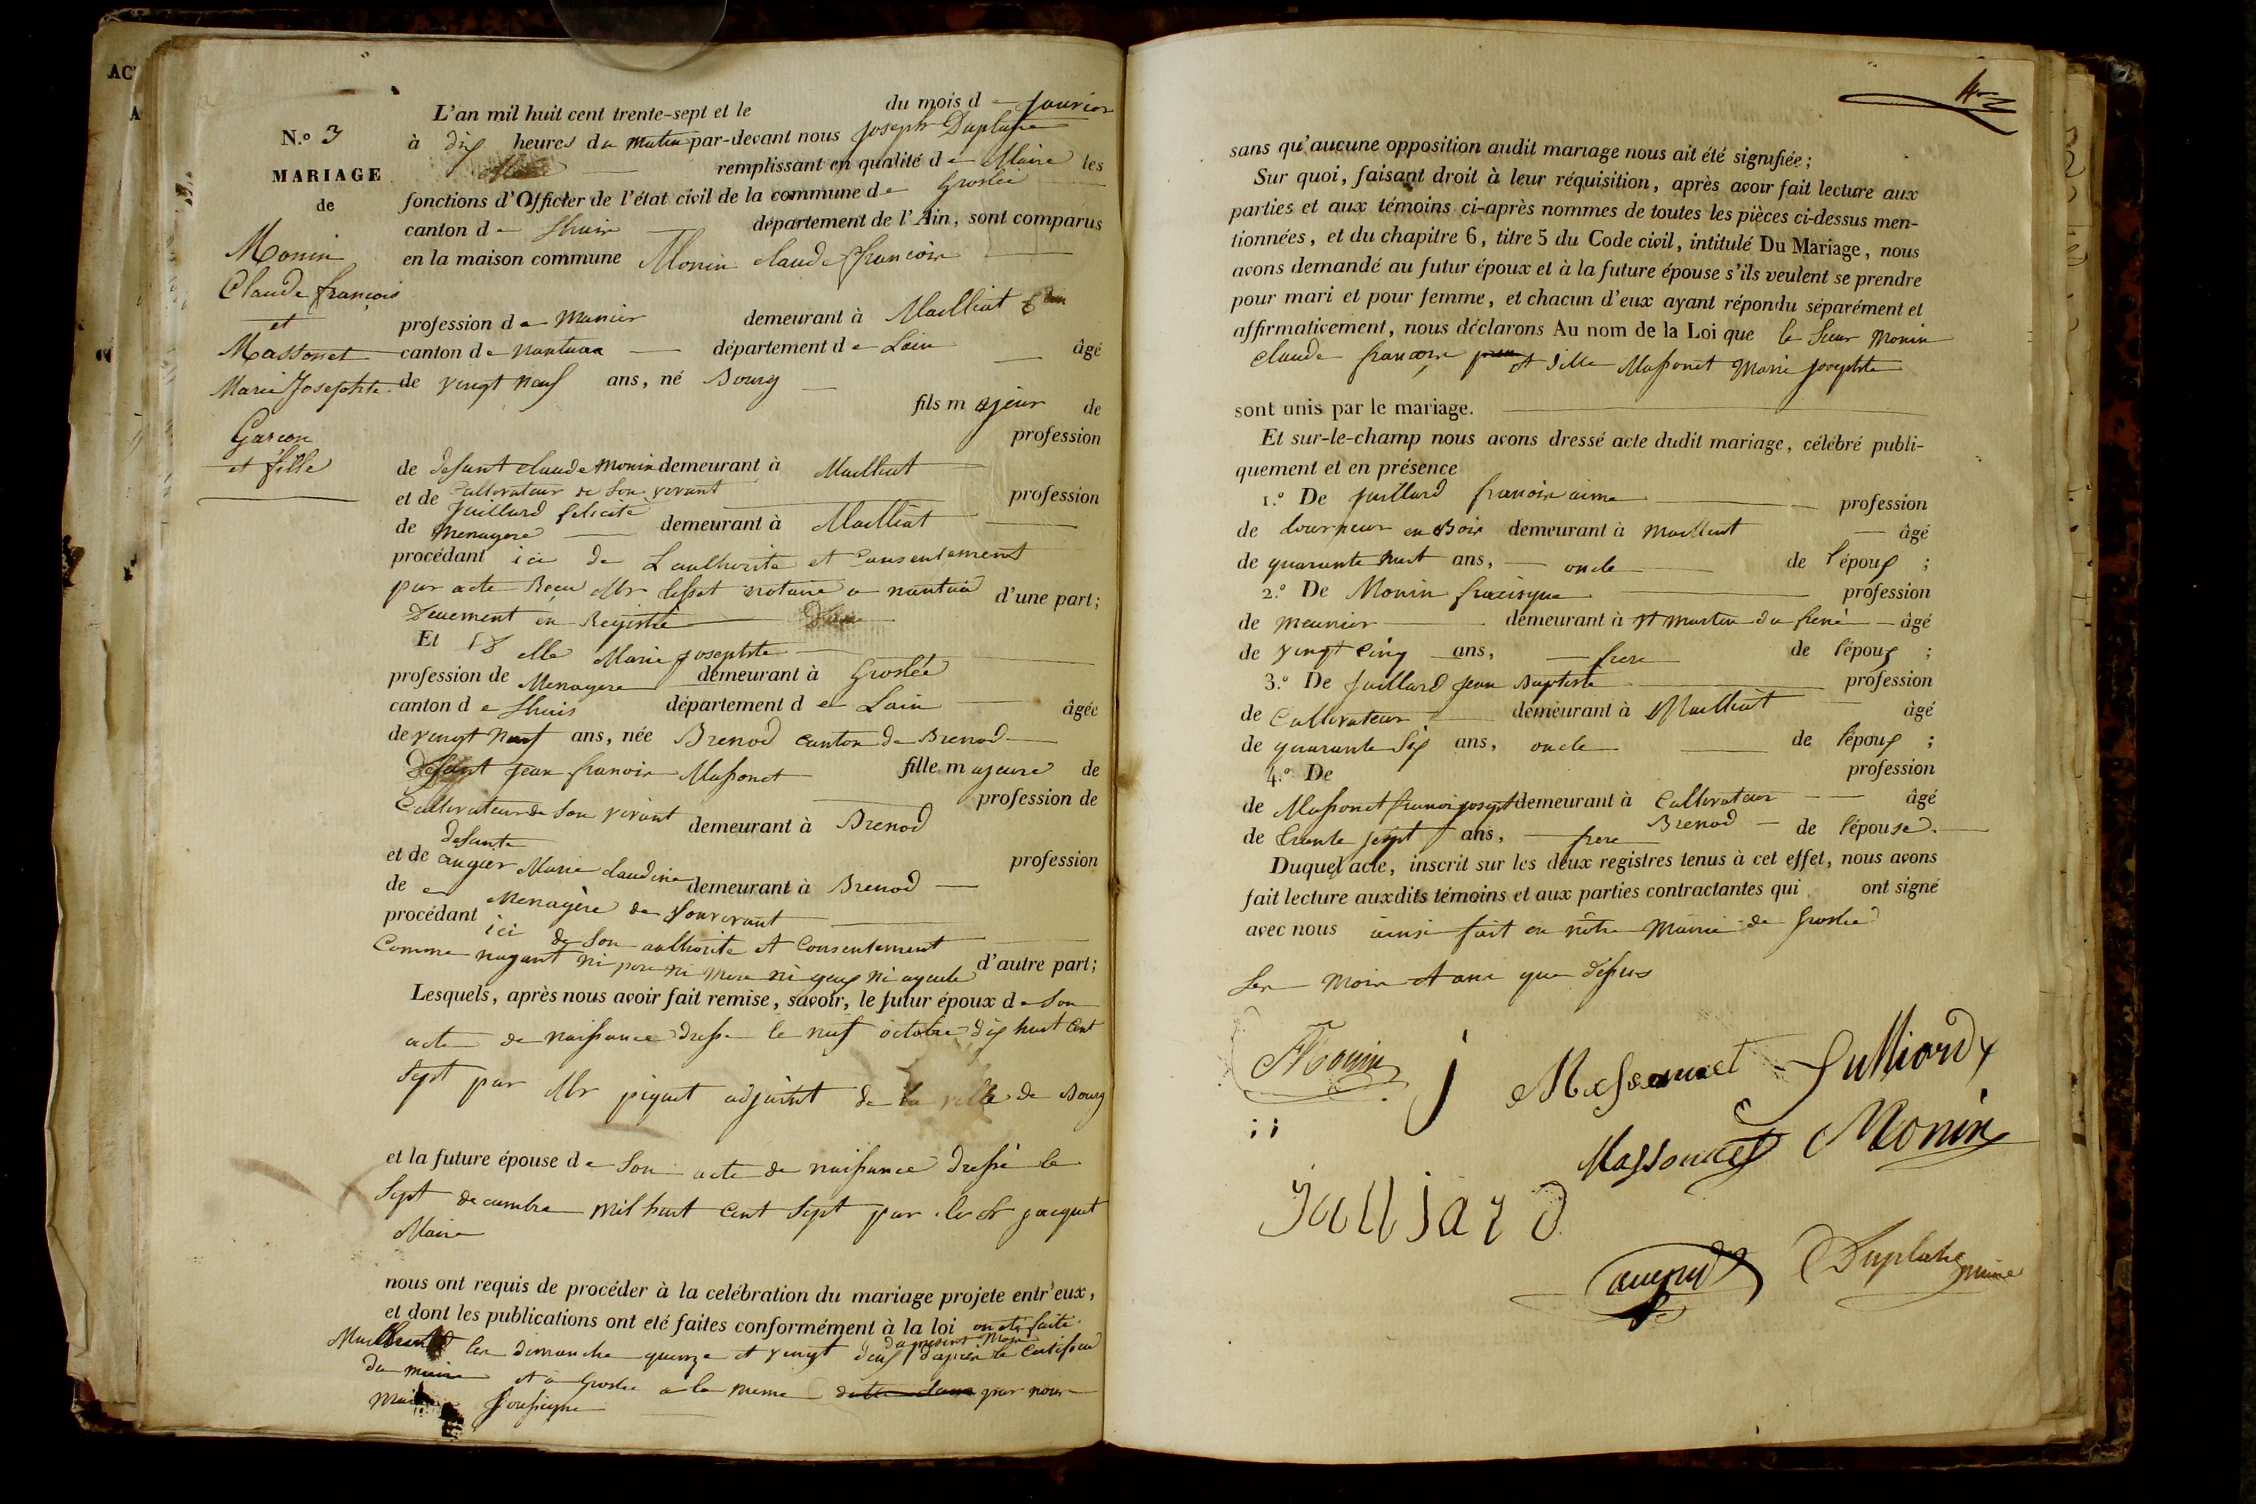 N.º 3
MARIAGE
de
Monin
Claude françois
et
Massonet
Marie Josephte
Garçon
et fille
L'an mil huit cent trente-sept et le du mois de Janvier
à dix heures du matin par-devant nous Joseph Duplatre
remplissant en qualité de Maire les
fonctions d'Officier de l'état civil de la commune de Groslée
canton de Lhuis département de l'Ain, sont comparus
en la maison commune Monin claude francois
profession de Munier demeurant à Mailliat
canton de Nantua département de Lain âgé
de vingt neuf ans, né Bourg
fils majeur de
profession
de defunt claude Monin demeurant à Mailliat
et de Cultivateur de Son vivant profession
Juillard felicité
de menagere demeurant à Mailliat
procédant ici de Lauthorite et Consentement
par acte Reçu Mr notaire a nantua d'une part;
Duement en Registré
Et elle Marie josephte
profession de Menagere demeurant à Groslée
canton de Lhuis département de Lain âgée
de vingt neuf ans, née Brenod canton de Brenod
Defunt jean francois Massonet fille majeure de
Cultivateur de Son vivant profession de
demeurant à Brenod
defunte
et de augier Marie claudine profession
de Menagère de Son vivant demeurant à Brenod
procédant ici de Son authorite et Consentement
Comme nayant ni pere ni mere ni yeux ni ayeule d'autre part;
Lesquels, après nous avoir fait remise, savoir, le futur époux de Son
acte de naissance dressé le neuf octobre dix huit cent
Sept par Mr piquet adjoint de la ville de Bourg
et la future épouse de Son acte de naissance dressé le
Sept decembre mil huit cent Sept par le Sr jacquet
Maire
nous ont requis de procéder à la celébration du mariage projete entr'eux,
et dont les publications ont eté faites conformément à la loi on ete faite
du present mois
les dimanche quinze et vingt deux d'apres le certificat
du maire et a Groslee a la meme par nous
Maire Soussigné
sans qu'aucune opposition audit mariage nous ait été signifiée;
Sur quoi, faisant droit à leur réquisition, après avoir fait lecture aux
parties et aux témoins ci-après nommes de toutes les pièces ci-dessus men-
tionnées, et du chapitre 6, titre 5 du Code civil, intitulé Du Mariage, nous
avons demandé au futur époux et à la future épouse s'ils veulent se prendre
pour mari et pour femme, et chacun d'eux ayant répondu séparément et
affirmativement, nous déclarons Au nom de la Loi que le Sieur Monin
claude francois et dlle Massonet Marie josephte
sont unis par le mariage.
Et sur-le-champ nous avons dressé acte dudit mariage, célébré publi-
quement et en présence
1.º De Juillard francois aime profession
de tourneur en Bois demeurant à Mailliat âgé
de quarante huit ans, oncle de l'époux ;
2.º De Monin francisque profession
de meunier demeurant à St martin du frene âgé
de vingt cinq ans, frere de l'époux ;
3.º De Juillard jean Baptiste profession
de Cultivateur demeurant à Mailliat âgé
de quarante Six ans, oncle de l'époux ;
4.º De profession
de Massonet francois joseph demeurant à Cultivateur âgé
de trente sept ans, frere Brenod de l'épouse.
Duquel acte, inscrit sur les deux registres tenus à cet effet, nous avons
fait lecture auxdits témoins et aux parties contractantes qui ont signé
avec nous ainsi fait en nôtre Mairie de Groslée
Les Mois et ans que dessus
Monin j Massonnet Julliard
Massonnet Monin
julliard
Duplatre maire